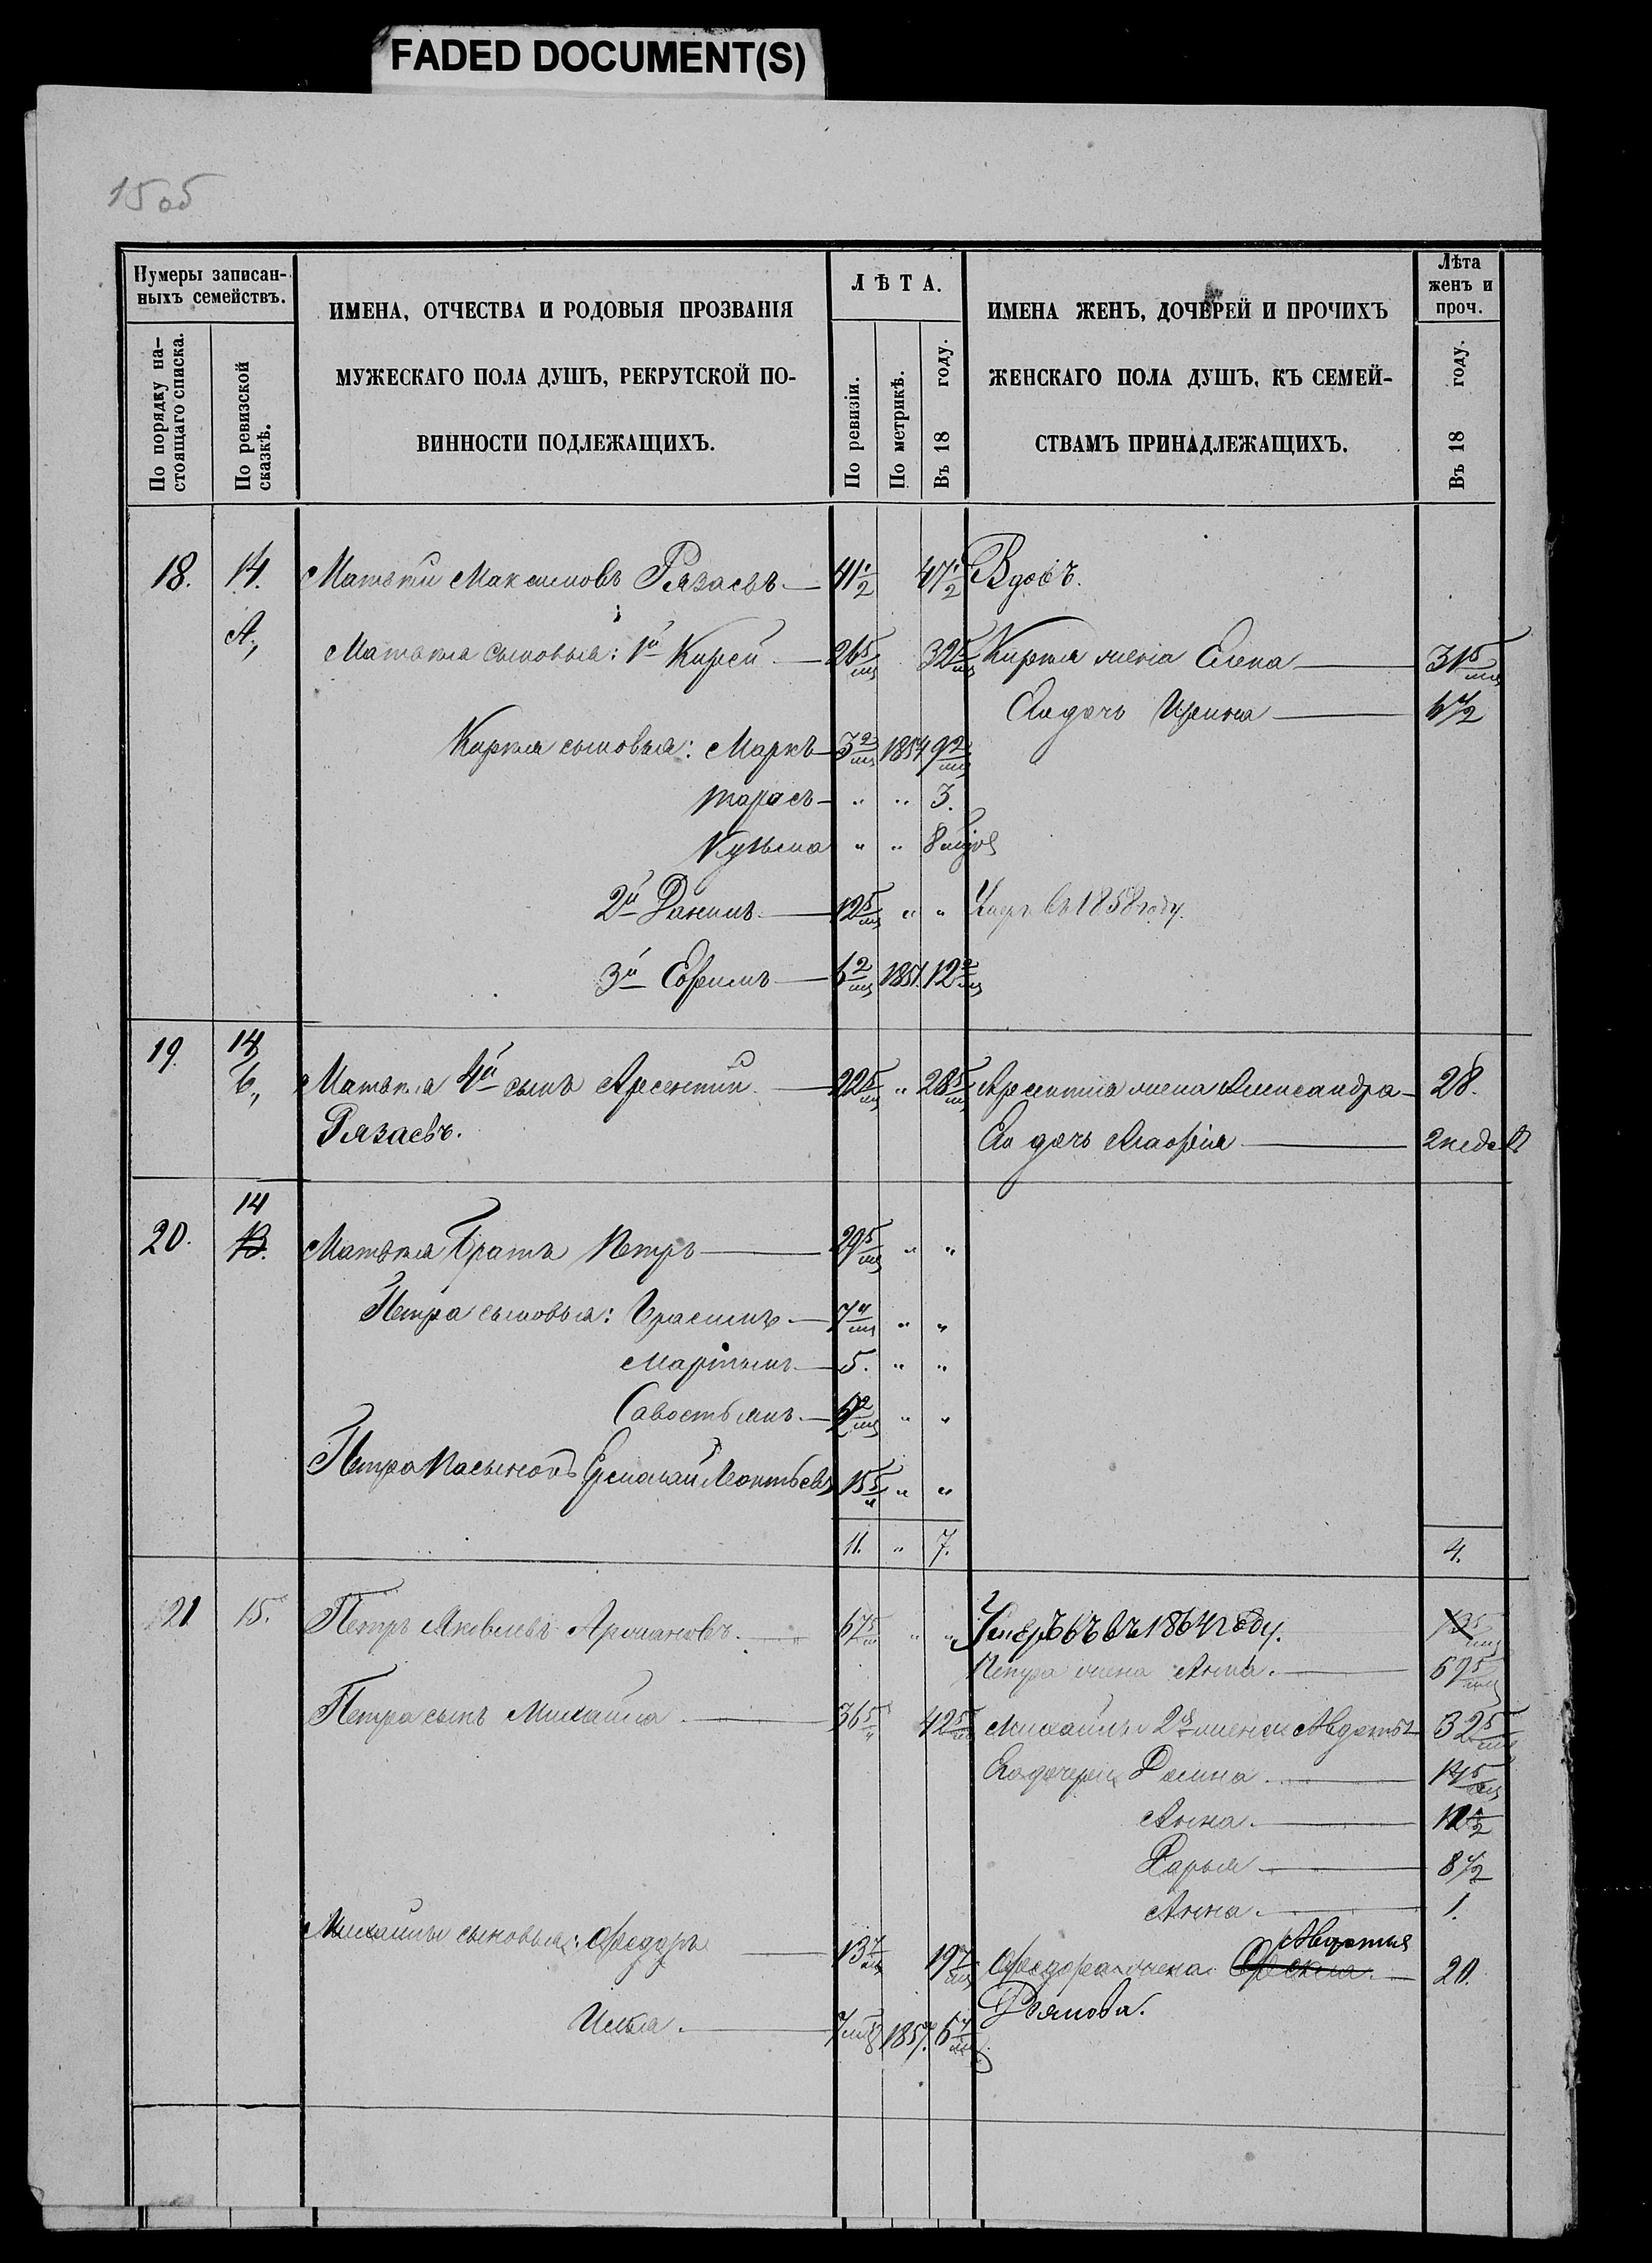 FADED DOCUMENT(S)
15 об
Нумеры записан-
ныхъ семействъ.
По порядку на-
стоящаго списка.
По ревизской
сказкѣ.
ИМЕНА, ОТЧЕСТВА И РОДОВЫЯ ПРОЗВАНІЯ
МУЖЕСКАГО ПОЛА ДУШЪ, РЕКРУТСКОЙ ПО-
ВИННОСТИ ПОДЛЕЖАЩИХЪ.
ЛѢТА.
По ревизіи.
По метрикѣ.
Въ 18 году.
ИМЕНА ЖЕНЪ, ДОЧЕРЕЙ И ПРОЧИХЪ
ЖЕНСКАГО ПОЛА ДУШЪ, КЪ СЕМЕЙ-
СТВАМЪ ПРИНАДЛЕЖАЩИХЪ.
Лѣта
женъ и
проч.
Въ 18 году.
18. 14. Матвѣй Максимовъ Рязаевъ 41 1/2 47 1/2 Вдовъ.
А, Матвѣя сыновья: 1й Кирей 26 5/мц 32 5/мц Кирѣя жена Елена 31 5/мц
Ея дочь Ирина 6 1/2
Кирѣя сыновья: Маркъ 3 2/мц 1854 9 2/мц
Тарасъ " " 3.
Кузьма " " 8
2й Данилъ 12 5/мц " " въ 1858 году.
3й Ефимъ 6 2/мц 1851. 12 2/мц
19. 14 Б, Матвѣя 4й сынъ Арсентій 22 5/мц " 28 5/мц Арсентія жена Александра 28.
Рязаевъ. Ея дочь 2 недел
20. 14 В. Матвѣя братъ Петръ 29 5/мц " "
Петра сыновья: Герасимъ 7 мц " "
Мартынъ 5. " "
Савостьянъ 2/мц " "
Петра пасынокъ Ермолай Леонтьевъ 15 5/м " "
11. " 7. 4.
21 15. Петръ Яковлевъ 67 5/м " " Умеръ въ 1864 году.
Петра жена Анна. 69 5/мц
Петра сынъ Михайла 36 5/м 42 5/мц Михайлы 2я жена Авдотья 32 5/мц
Ея дочери Домна
Анна.
Дарья 8 1/2
Анна. 1.
Михайлы сыновья: Федоръ 13 7/мц 19 7/мц Федора жена Авдотья 20.
Илья. 7 мц 1857. 6